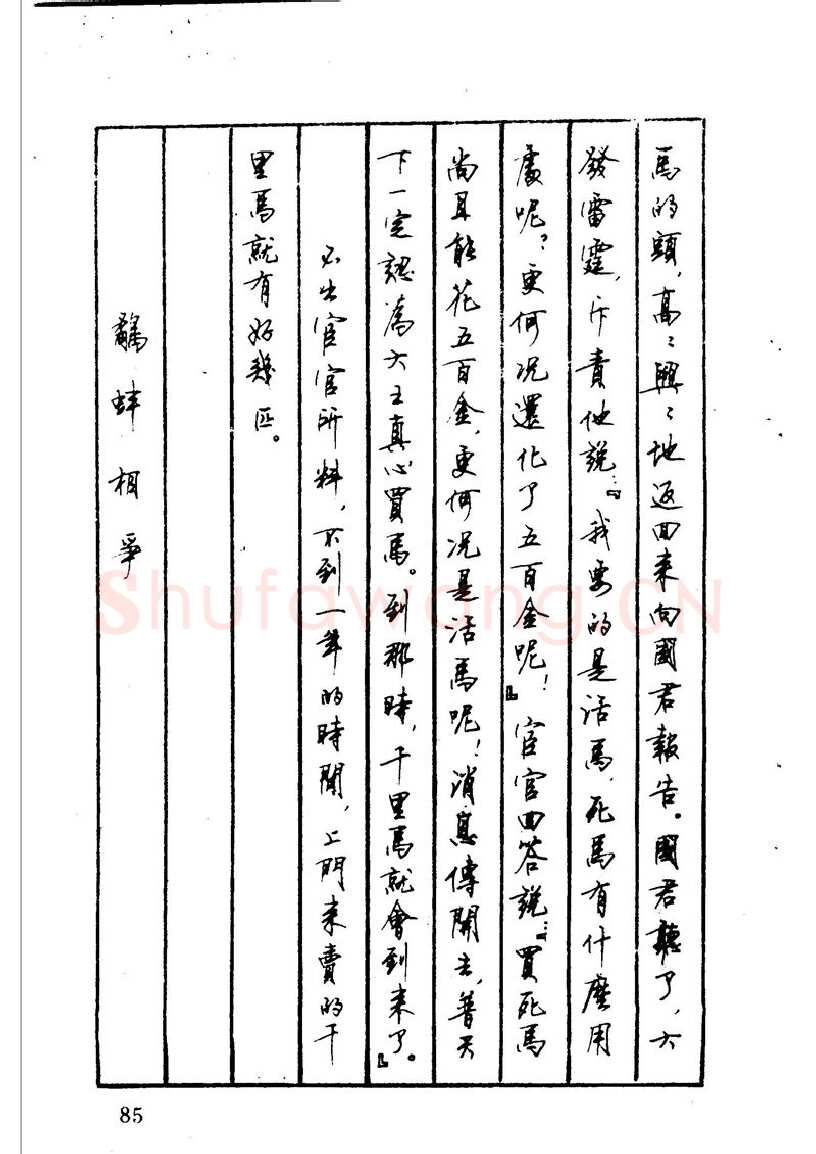 馬的頭，高：興：地返回来向國君報告。國君聽了，大
發雷霆，斥責他說：『我要的是活馬，死馬有什麼用
處呢？更何况還化了五百金呢！』宦官回答說：『買死馬
尚且能花五百金，更何况是活馬呢！消息傳開去，普天
下一定認為大王真心買馬。到那時，千里馬就會到来了。』
不出宦官所料，不到一年的時間，上門来賣的千
里馬就有好幾匹。
鷸蚌相爭
85
Shufawang.CN